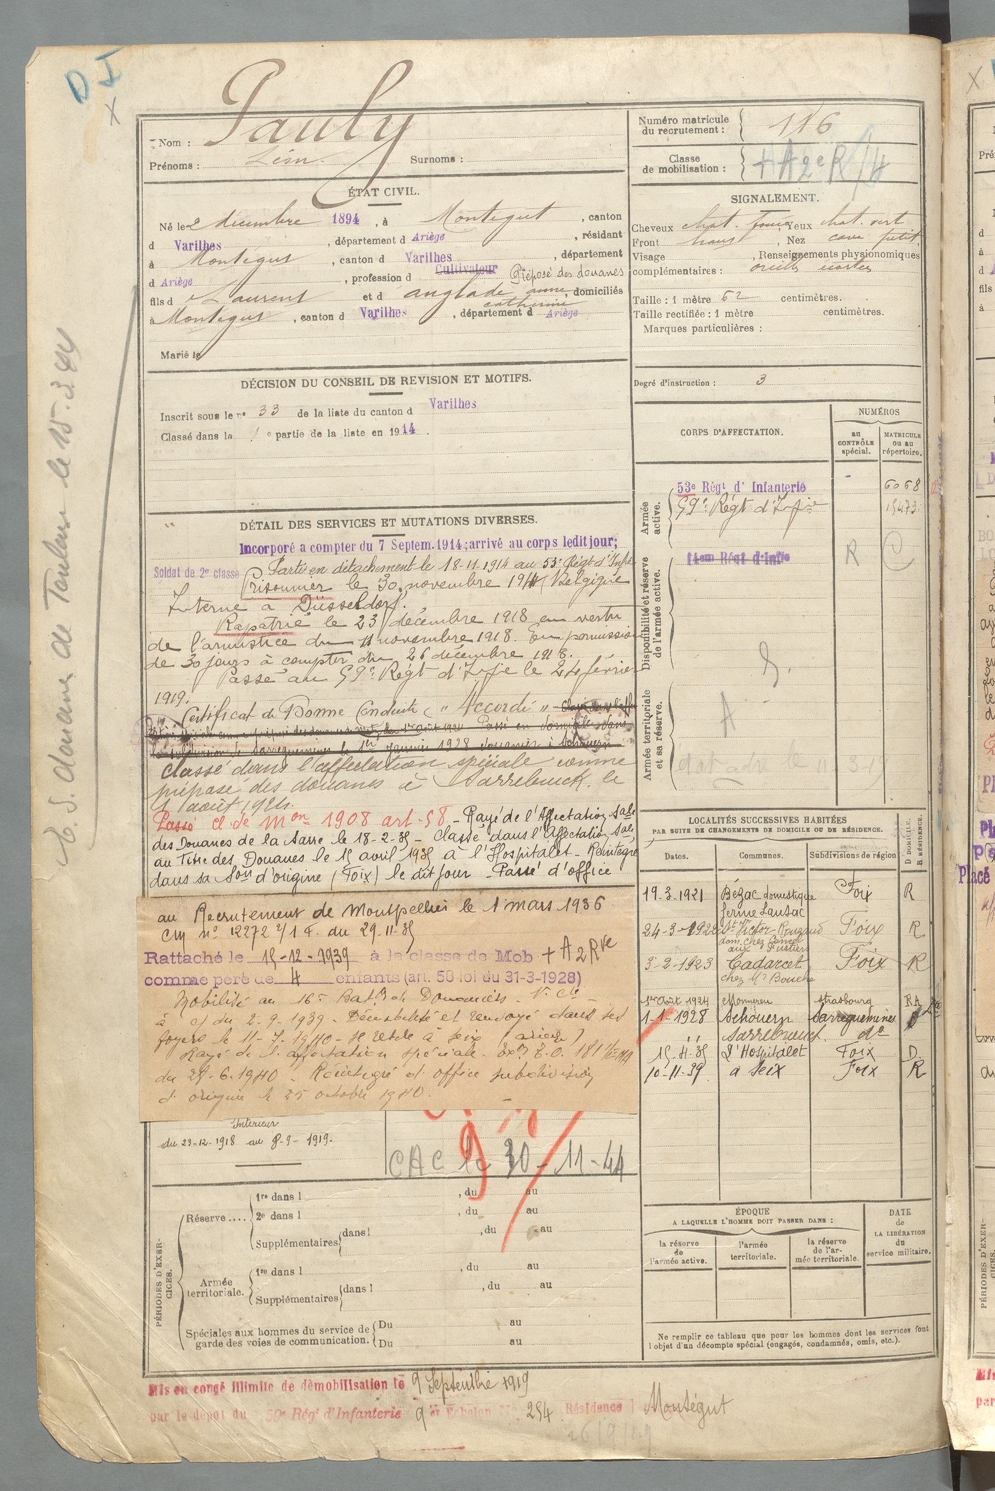 D I
X
Nom : Pauly
Prénoms : Léon Surnoms :
Numéro matricule du recrutement : 116
Classe de mobilisation : + A 2e R/4
ÉTAT CIVIL.
Né le 2 décembre 1894, à Montégut, canton
d Varilhes, département d Ariège, résidant
à Montégut, canton d Varilhes, département
d Ariège, profession d Cultivateur Préposé des douanes
fils d Laurent et d Anglade anne catherine, domiciliés
à Montégut, canton d Varilhes, département d Ariège
Marié le
SIGNALEMENT.
Cheveux chat. foncé Yeux chat. vert
Front haut, Nez cave petit
Visage , Renseignements physionomiques
complémentaires : oreilles écartées
Taille : 1 mètre 62 centimètres.
Taille rectifiée : 1 mètre centimètres.
Marques particulières :
Degré d'instruction : 3
DÉCISION DU CONSEIL DE REVISION ET MOTIFS.
Inscrit sous le no 33 de la liste du canton d Varilhes
Classé dans la 1e partie de la liste en 1914.
CORPS D'AFFECTATION.
NUMÉROS
au CONTRÔLE spécial.
MATRICULE ou au répertoire.
Armée active.
53e Régt d'Infanterie 6068
59e Régt d'Infie 15473
Disponibilité et réserve de l'armée active.
R
Armée territoriale et sa réserve.
A
DÉTAIL DES SERVICES ET MUTATIONS DIVERSES.
Incorporé a compter du 7 Septem. 1914; arrivé au corps ledit jour;
Soldat de 2e classe Parti en détachement le 18-11-1914 au 53e Régt d'Infie
Prisonnier le 30 novembre 1914 Belgique
Interné à Düsseldorf.
Rapatrié le 23 décembre 1918 en vertu
de l'armistice du 11 novembre 1918. En permission
de 30 jours à compter du 26 décembre 1918.
Passé au 59e Régt d'Infie le 24 février
1919.
Certificat de Bonne Conduite "Accordé"
Classé dans l'affectation spéciale comme
préposé des douanes à Sarrebruck le
1 août 1924.
Passé cl de mon 1908 art. 58. - Rayé de l'Affectation Sale
des Douanes de la Sarre le 18-2-35 - Classé dans l'Affectation Sale
au Titre des Douanes le 15 avril 1935 à l'Hospitalet - Réintégré
dans sa Son d'origine (Foix) le dit jour - Passé d'office
au Recrutement de Montpellier le 1 mars 1936
Cm no 12272 2/1 F. du 29.11.35
Rattaché le 15-12-1939 à la classe de Mob + A 2 Rve
comme père de 4 enfants (art. 58 loi du 31-3-1928)
Mobilisé au 16e Batn de Douaniers. Vo Cie
à c/ du 2-9-1939 - Démobilisé et renvoyé dans ses
foyers le 11-7-1940 - Se retire à Seix (Ariège)
Rayé de l'affectation spéciale
du 25-6-1940. Réintégré d'office subdivision
d'origine le 25 octobre 1940.
LOCALITÉS SUCCESSIVES HABITÉES
PAR SUITE DE CHANGEMENTS DE DOMICILE OU DE RÉSIDENCE.
Dates. Communes. Subdivisions de région
D DOMICILE. R RÉSIDENCE.
19-3-1921 Bézac domestique ferme Lansac Foix R
24-3-1922 St Victor-Rouzaud Foix R
3-2-1923 Cadarcet chez Mr Bouche Foix R
1er Août 1924 Strasbourg RA
1-1-1928 Schouern Sarreguemines
Sarrebruck do
15-4-35 L'Hospitalet Foix D
10-11-39 à Seix Foix R
Intérieur
du 23-12-1918 au 8-9-1919.
CAC le 30-11-44
PÉRIODES D'EXERCICES.
Réserve.... 1re dans l , du au
2e dans l , du au
Supplémentaires dans l , du au
Armée territoriale. 1re dans l , du au
Supplémentaires dans l , du au
Spéciales aux hommes du service de garde des voies de communication. Du au
Du au
ÉPOQUE
A LAQUELLE L'HOMME DOIT PASSER DANS :
la réserve de l'armée active.
l'armée territoriale.
la réserve de l'armée territoriale.
DATE de LA LIBÉRATION du service militaire.
Ne remplir ce tableau que pour les hommes dont les services font
l'objet d'un décompte spécial (engagés, condamnés, omis, etc.).
Mis en congé illimité de démobilisation le 9 Septembre 1919
par le dépôt du 59e Régt d'Infanterie 9e Echelon No 254 Résidence Montégut
A. S. douane de Toulouse le 15.3.44